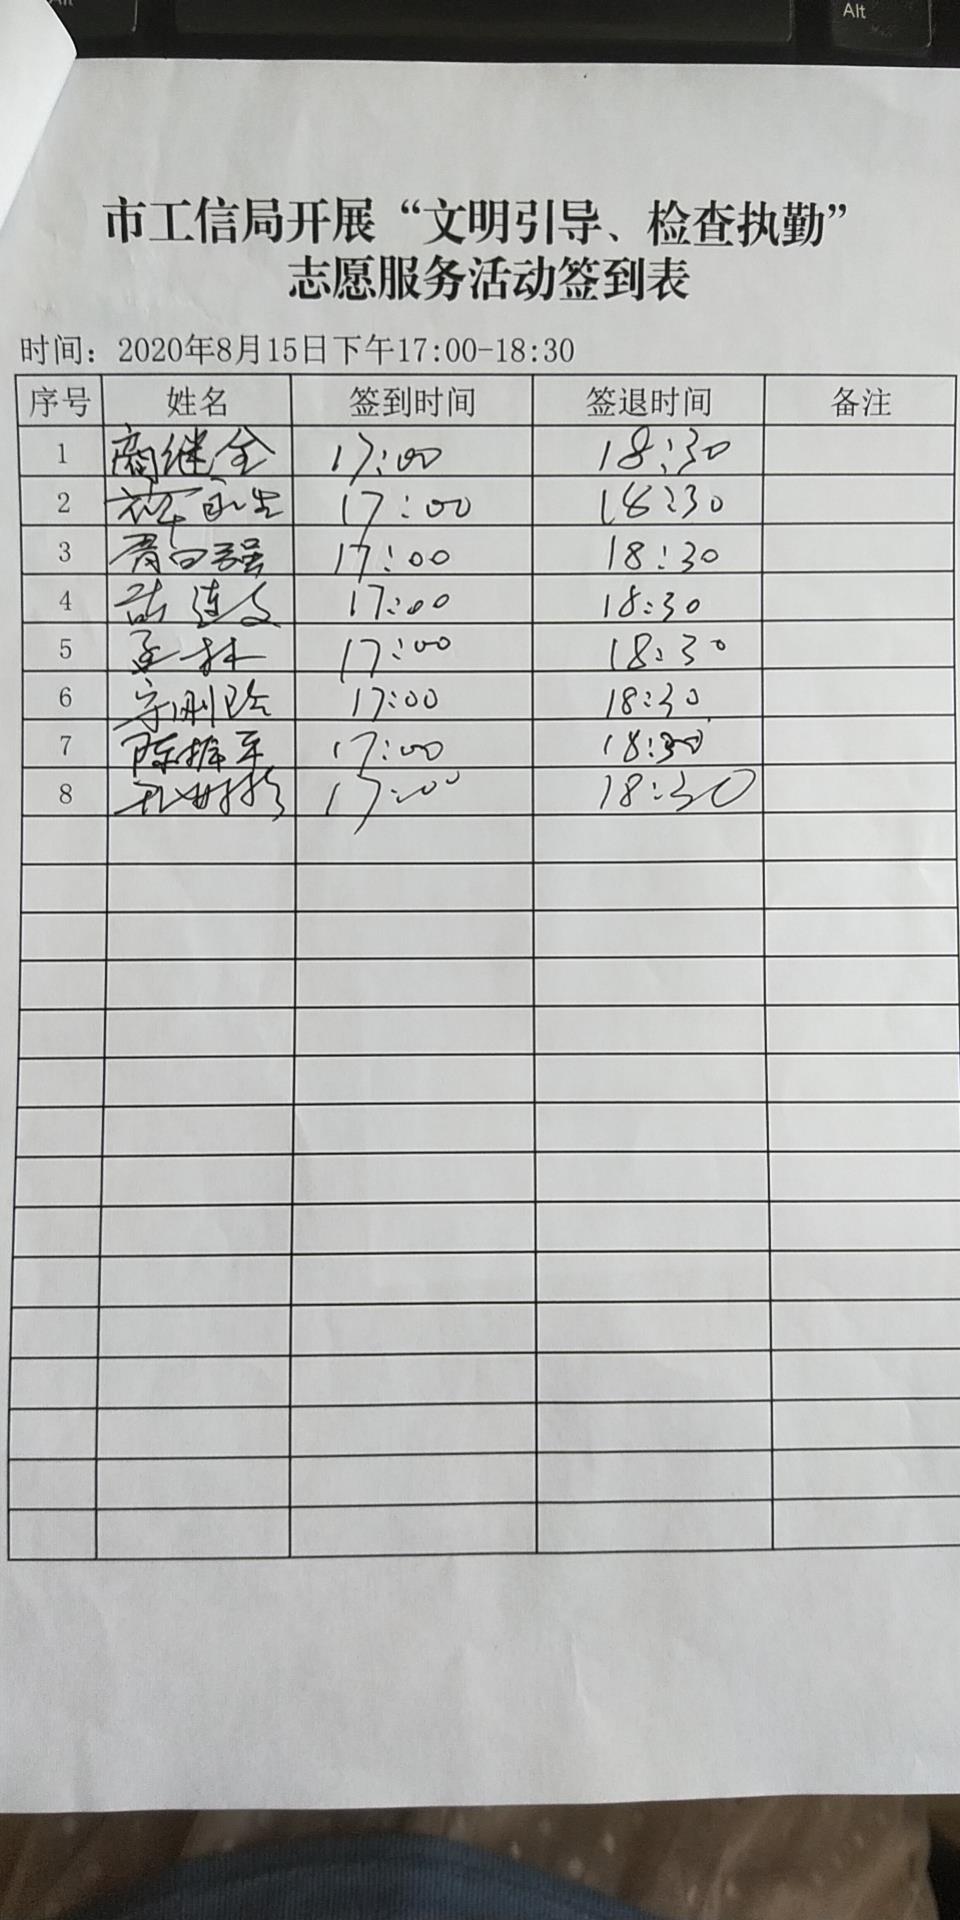 Alt
Alt
市工信局开展“文明引导、检查执勤”
志愿服务活动签到表
时间：2020年8月15日下午17:00-18:30
序号 姓名 签到时间 签退时间 备注
1 商继全 17:00 18:30
2 17:00 18:30
3 17:00 18:30
4 连文 17:00 18:30
5 林 17:00 18:30
6 17:00 18:30
7 陈振军 17:00 18:30
8 17:00 18:30